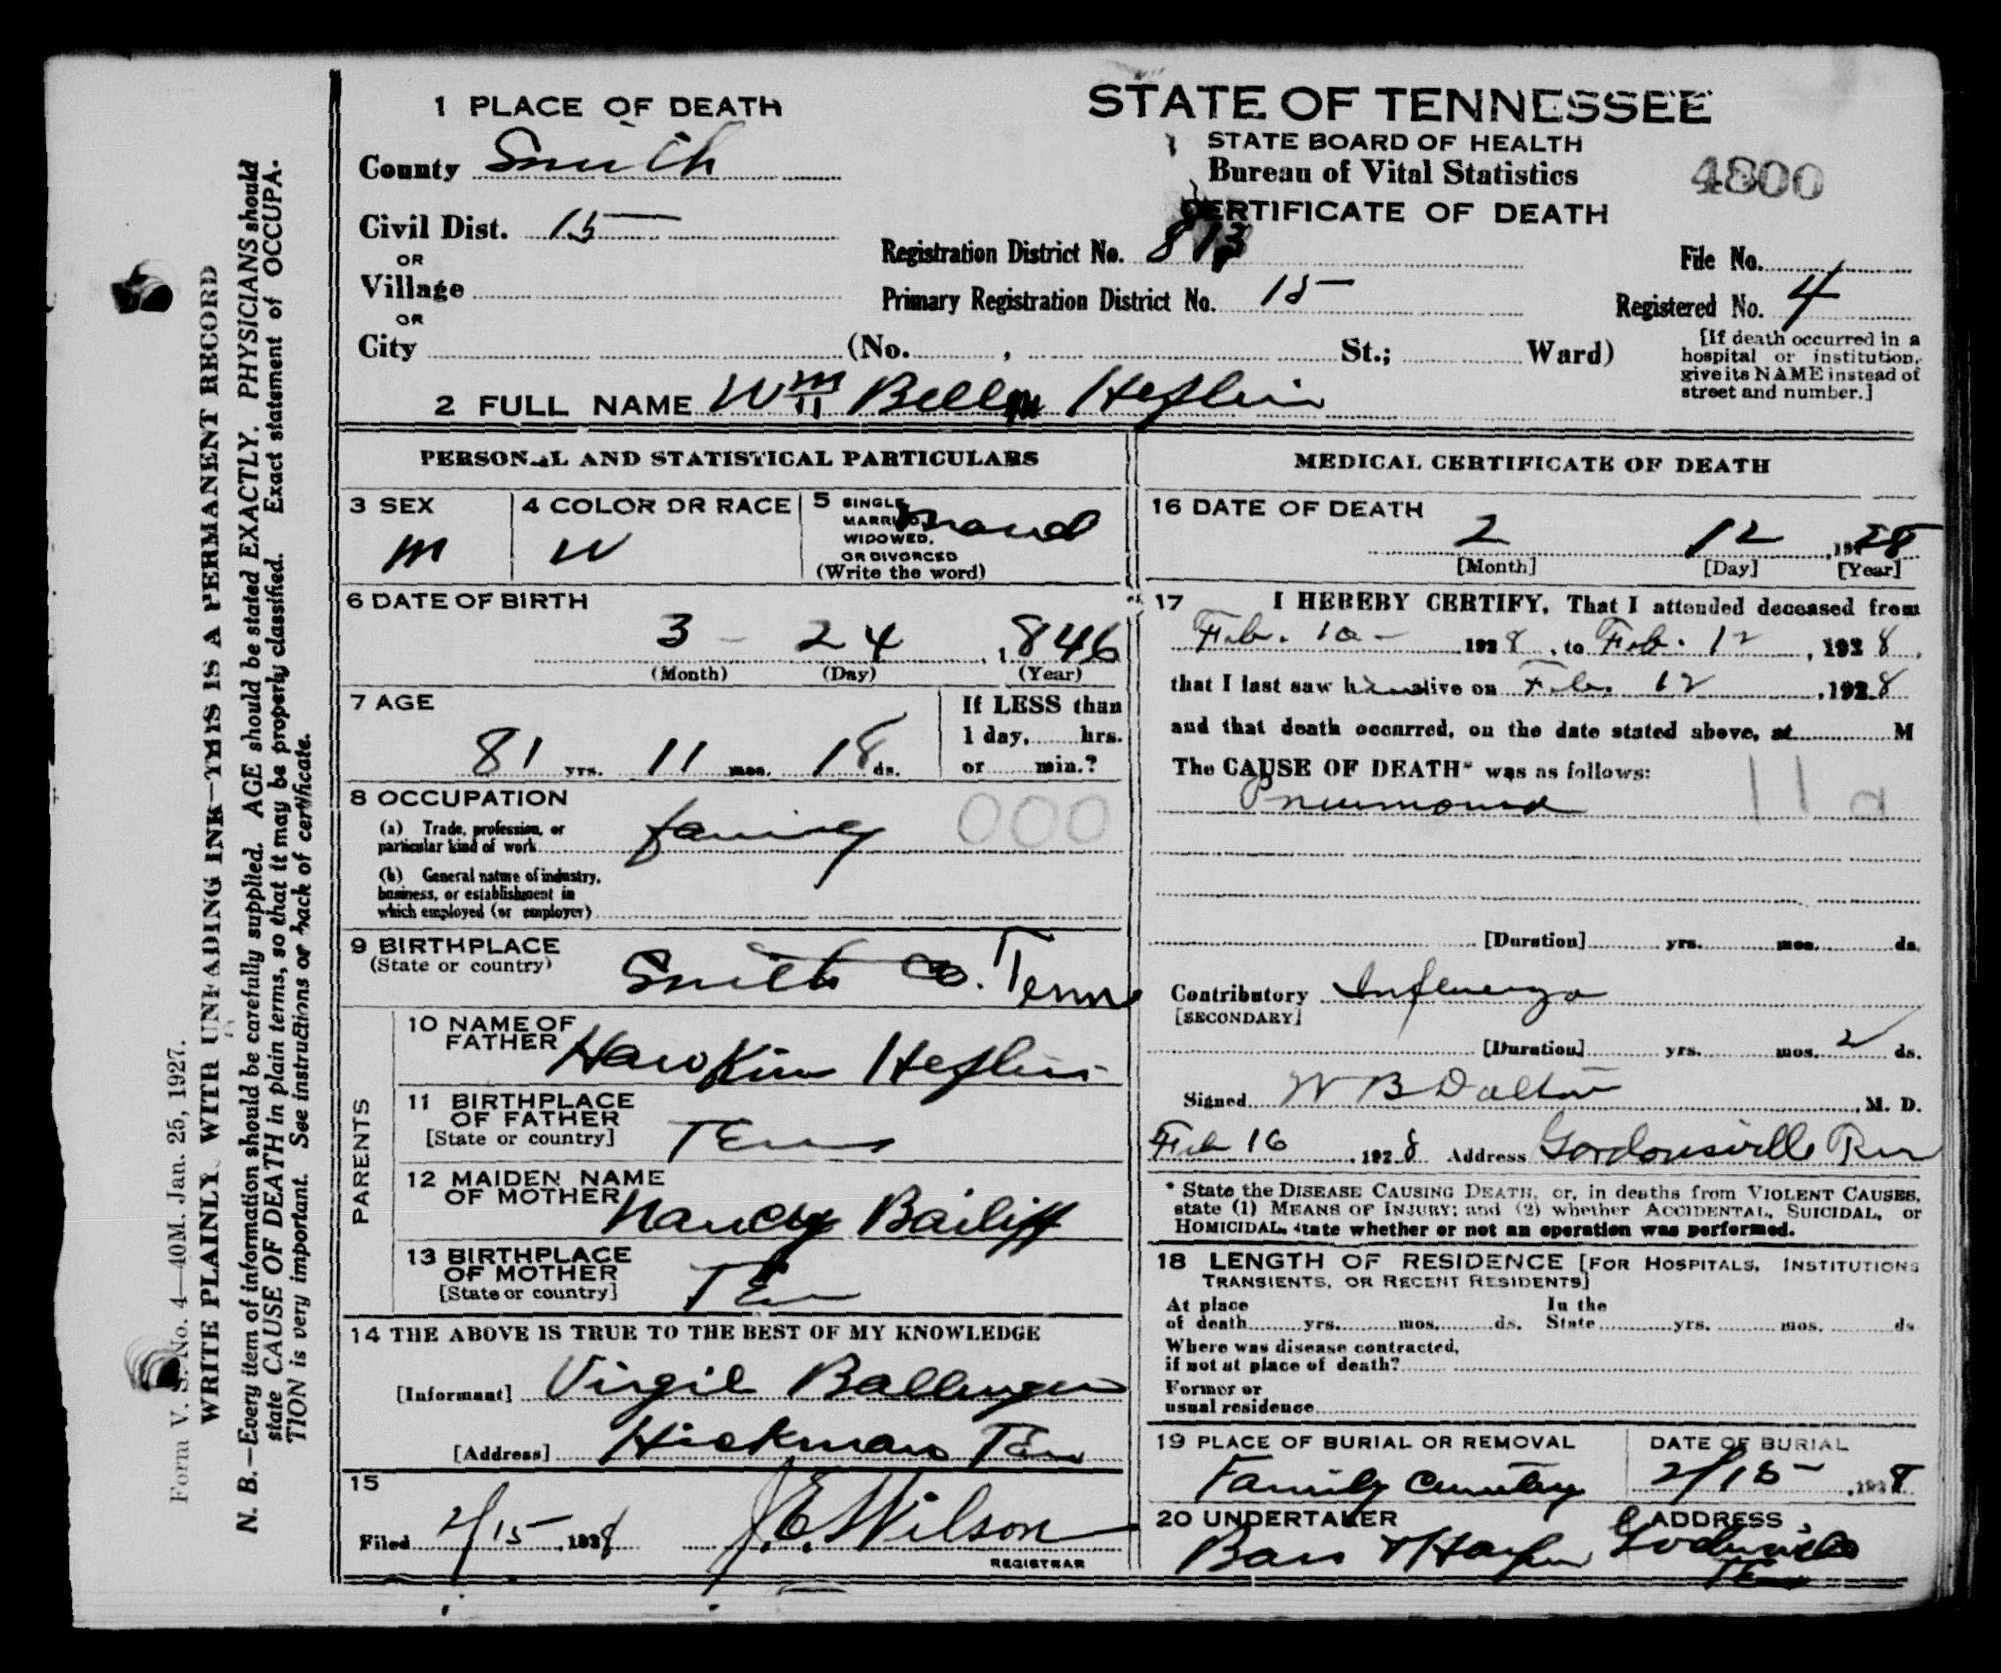 1 PLACE OF DEATH
County Smith
Civil Dist. 15
OR
Village
OR
City (No. , St.; Ward)
STATE OF TENNESSEE
STATE BOARD OF HEALTH
Bureau of Vital Statistics
CERTIFICATE OF DEATH
4800
Registration District No. 813
Primary Registration District No. 15
File No.
Registered No. 4
[If death occurred in a
hospital or institution,
give its NAME instead of
street and number.]
2 FULL NAME Wm Bell Heflin
PERSONAL AND STATISTICAL PARTICULARS
3 SEX
M
4 COLOR OR RACE
W
5 SINGLE,
MARRIED,
WIDOWED,
OR DIVORCED
(Write the word)
6 DATE OF BIRTH
3 - 24 , 1846
(Month) (Day) (Year)
7 AGE
81 yrs. 11 mos. 18 ds.
If LESS than
1 day, hrs.
or min.?
8 OCCUPATION
(a) Trade, profession, or
particular kind of work
000
(b) General nature of industry,
business, or establishment in
which employed (or employer)
9 BIRTHPLACE
(State or country)
Smith Co. Tenn
PARENTS
10 NAME OF
FATHER Hawkins Heflin
11 BIRTHPLACE
OF FATHER
[State or country] Tenn
12 MAIDEN NAME
OF MOTHER Nancy Bailiff
13 BIRTHPLACE
OF MOTHER
[State or country] Ten
14 THE ABOVE IS TRUE TO THE BEST OF MY KNOWLEDGE
[Informant] Virgil Ballinger
[Address] Hickman Ten
15
Filed 2/15, 1928 J. E. Wilson
REGISTRAR
MEDICAL CERTIFICATE OF DEATH
16 DATE OF DEATH
2 12 , 1928
[Month] [Day] [Year]
17 I HEREBY CERTIFY, That I attended deceased from
Feb. 10 - 1928, to Feb. 12, 1928,
that I last saw him alive on Feb. 12, 1928
and that death occurred, on the date stated above, at M
The CAUSE OF DEATH* was as follows:
Pneumonia 11a
[Duration] yrs. mos. ds.
Contributory Influenza
[SECONDARY]
[Duration] yrs. mos. 2 ds.
Signed W B Dalton, M. D.
Feb 16, 1928 Address Gordonsville
* State the DISEASE CAUSING DEATH, or, in deaths from VIOLENT CAUSES,
state (1) MEANS OF INJURY; and (2) whether ACCIDENTAL, SUICIDAL, or
HOMICIDAL, state whether or not an operation was performed.
18 LENGTH OF RESIDENCE [FOR HOSPITALS, INSTITUTIONS
TRANSIENTS, OR RECENT RESIDENTS]
At place
of death yrs. mos. ds.
In the
State yrs. mos. ds
Where was disease contracted,
if not at place of death?
Former or
usual residence
19 PLACE OF BURIAL OR REMOVAL
Family Cemetery
DATE OF BURIAL
2/15, 1928
20 UNDERTAKER
Bass &
ADDRESS
Gordonsville
Ten
Form V. S. No. 4—40M. Jan. 25, 1927.
WRITE PLAINLY, WITH UNFADING INK—THIS IS A PERMANENT RECORD
N. B.—Every item of information should be carefully supplied. AGE should be stated EXACTLY. PHYSICIANS should
state CAUSE OF DEATH in plain terms, so that it may be properly classified. Exact statement of OCCUPA-
TION is very important. See instructions on back of certificate.